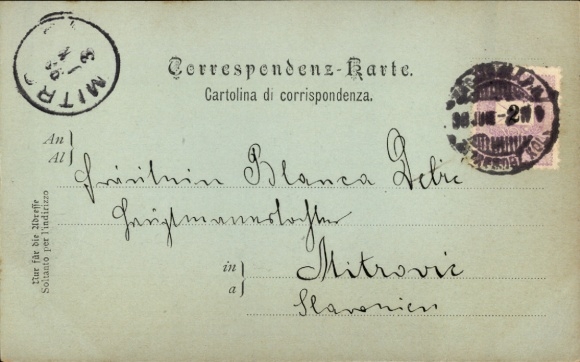 Correspondenz-Karte.
Cartolina di corrispondenza.
An
Al
Fräulein Blanca Debic
Hauptmannstochter
in
a
Mitrovic
Slavonien
Nur für die Adresse
Soltanto per l'indirizzo
MITR